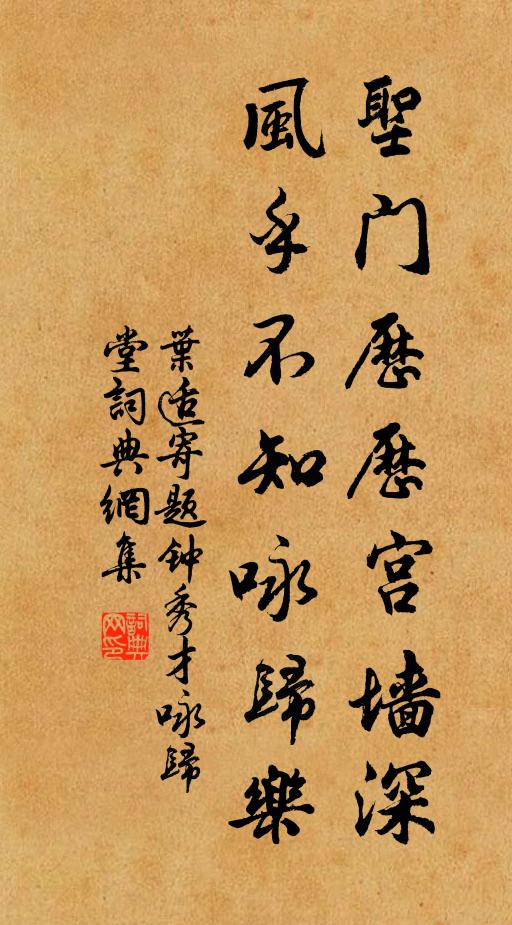 聖门歷歷宫墙深
風乎不知咏歸樂
葉适寄题钟秀才咏歸
堂詞典網集
詞典
网印